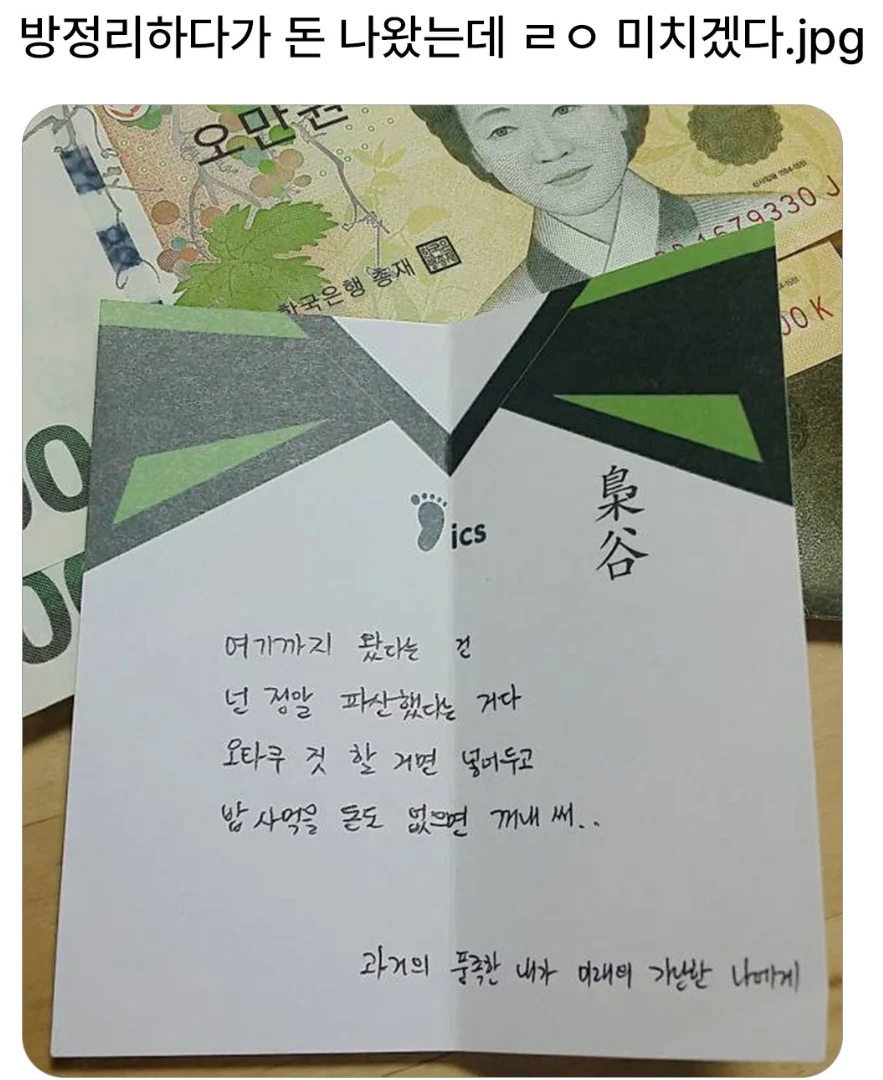 방정리하다가 돈 나왔는데 ㄹㅇ 미치겠다.jpg
오만원
한국은행 총재
00K
ics
梟谷
여기까지 왔다는 건
넌 정말 파산했다는 거다
오타쿠 짓 할 거면 넣어두고
밥 사먹을 돈도 없으면 꺼내 써..
과거의 풍족한 내가 미래의 가난한 나에게